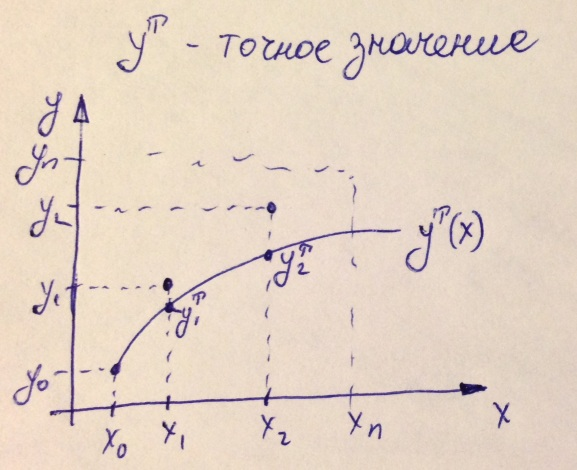 yᵀ - точное значение
y
yn
y₂
yᵀ(x)
y₂ᵀ
y₁
y₁ᵀ
y₀
x
x₀ x₁ x₂ xn